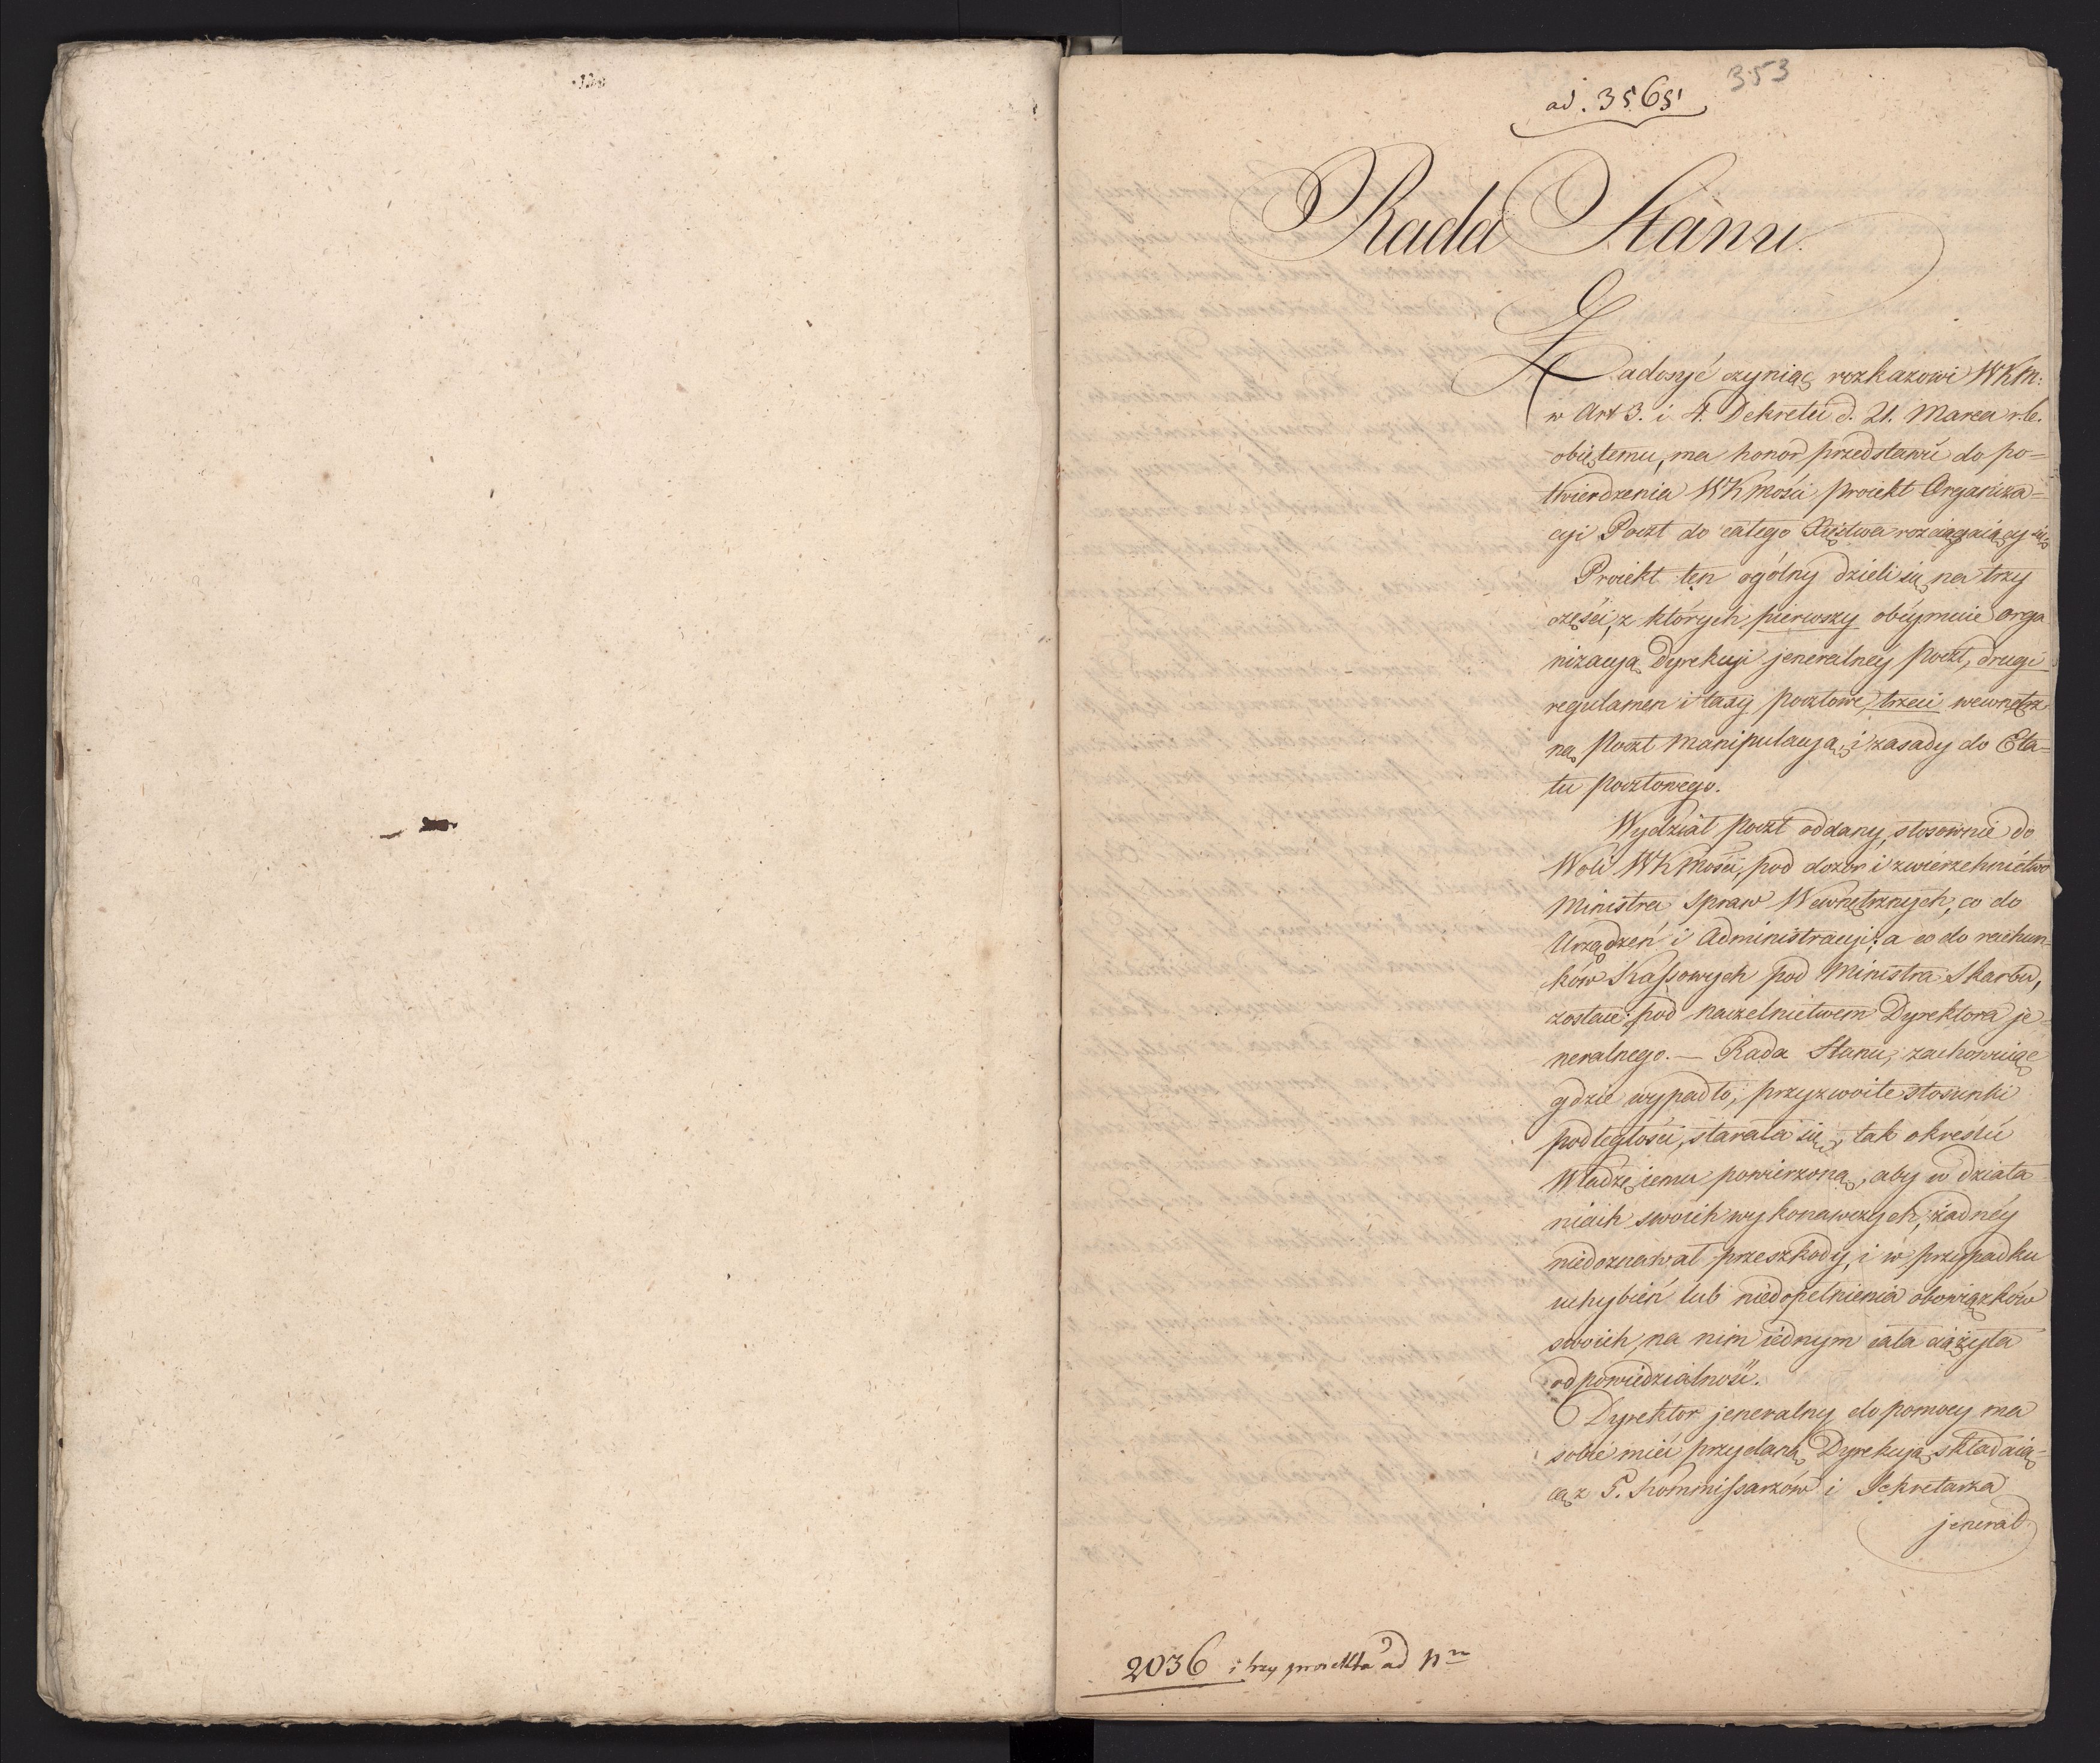 353
ad. 3565
Rada Stanu.
Zadosyć czyniąc rozkazowi WKM:
w Art 3. i 4. Dekretu d. 21. Marca r.b.
obiętemu, ma honor przedstawić do po=
twierdzenia WKMości proiekt Organiza=
cyi Poczt do całego Xięstwa rozciągaiący się
Proiekt ten ogólny dzieli się na trzy
części, z których pierwszy obeymuie orga
nizacyą Dyrekcyi jeneralnéy Poczt, drugi
regulamen i taxy pocztowe, trzeci wewnętrz
ną Poczt manipulacyą, i zasady do Eta=
tu pocztowego.
Wydział poczt oddany, stosownie do
Woli WKMości, pod dozor i zwierzchnictwo
Ministra Spraw Wewnętrznych, co do
Urządzeń i Administracyi; a co do rachun=
ków Kassowych pod Ministra Skarbu,
zostaie pod naczelnictwem Dyrektora je=
neralnego. — Rada Stanu, zachowuiąc
gdzie wypadło, przyzwoite stosunki
podległości, starała się, tak określić
Władzę iemu powierzoną, aby w działa
niach swoich wykonawczych, żadnéy
niedoznawał przeszkody, i w przypadku
uchybień lub niedopełnienia obowiązków
swoich, na nim iednym cała ciążyła
odpowiedzialność.
Dyrektor jeneralny do pomocy ma
sobie mieć przydaną Dyrekcyą, składaią=
cą z 5. Kommissarzów i Sekretarza
jeneral
2036 i trzy proiekta ad N